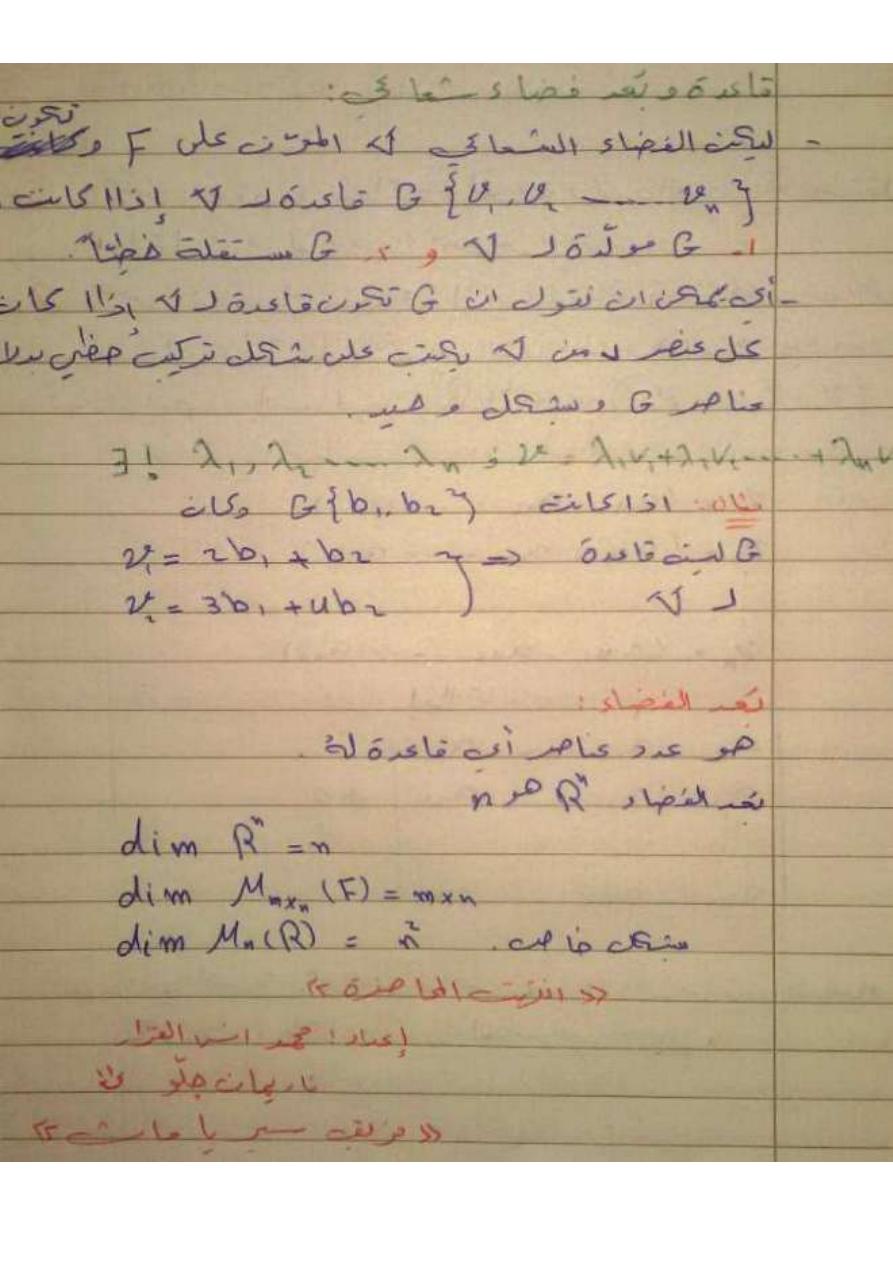 قاعدة و بُعد فضاء شعاعي:
- ليكن الفضاء الشعاعي V المعرّف على F و تكون
G {v₁, v₂ ...... vₙ} قاعدة لـ V إذا كانت
1. G مولّدة لـ V و 2. G مستقلة خطيّاً.
- أي يمكن ان نقول ان G تكون قاعدة لـ V إذا كان
كل عنصر v من V يكتب على شكل تركيب خطي بدلا
عناصر G وبشكل وحيد.
∃! λ₁, λ₂ ..... λₙ ; v = λ₁v₁+λ₂v₂.....+λₙv
مثال: اذا كانت G{b₁, b₂} وكان
v₁ = 2b₁ + b₂ } ⇒ G ليست قاعدة
v₂ = 3b₁ + 4b₂ لـ V
بُعد الفضاء:
هو عدد عناصر أي قاعدة لهُ.
بُعد الفضاء Rⁿ هو n
dim Rⁿ = n
dim Mₘₓₙ (F) = m×n
dim Mₙ(R) = n² بشكل خاص.
<< انتهت المحاضرة >>
إعداد: محمد انس القزاز
ناريمان جلّو
<< فريق سيريا ماث >>